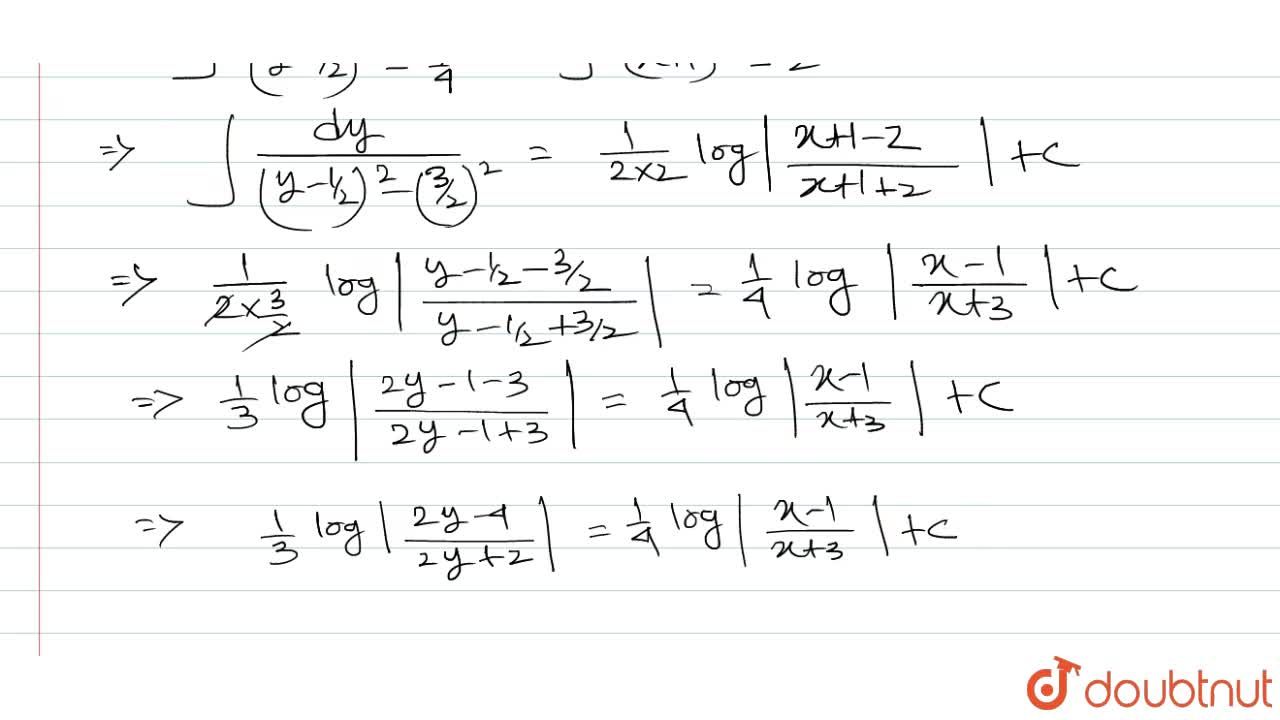 => ∫ dy/((y-1/2)² - (3/2)²) = 1/(2×2) log|(x+1-2)/(x+1+2)| + c
=> 1/(2×3/2) log|(y-1/2-3/2)/(y-1/2+3/2)| = 1/4 log|(x-1)/(x+3)| + c
=> 1/3 log|(2y-1-3)/(2y-1+3)| = 1/4 log|(x-1)/(x+3)| + c
=> 1/3 log|(2y-4)/(2y+2)| = 1/4 log|(x-1)/(x+3)| + c
doubtnut